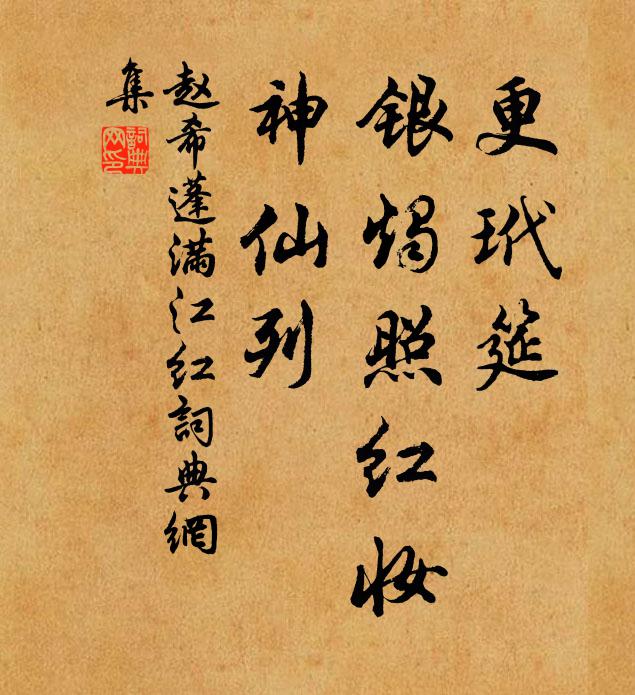 更玳筵
银烛照红妆
神仙列
赵希蓬满江红词典網
集
詞典网印